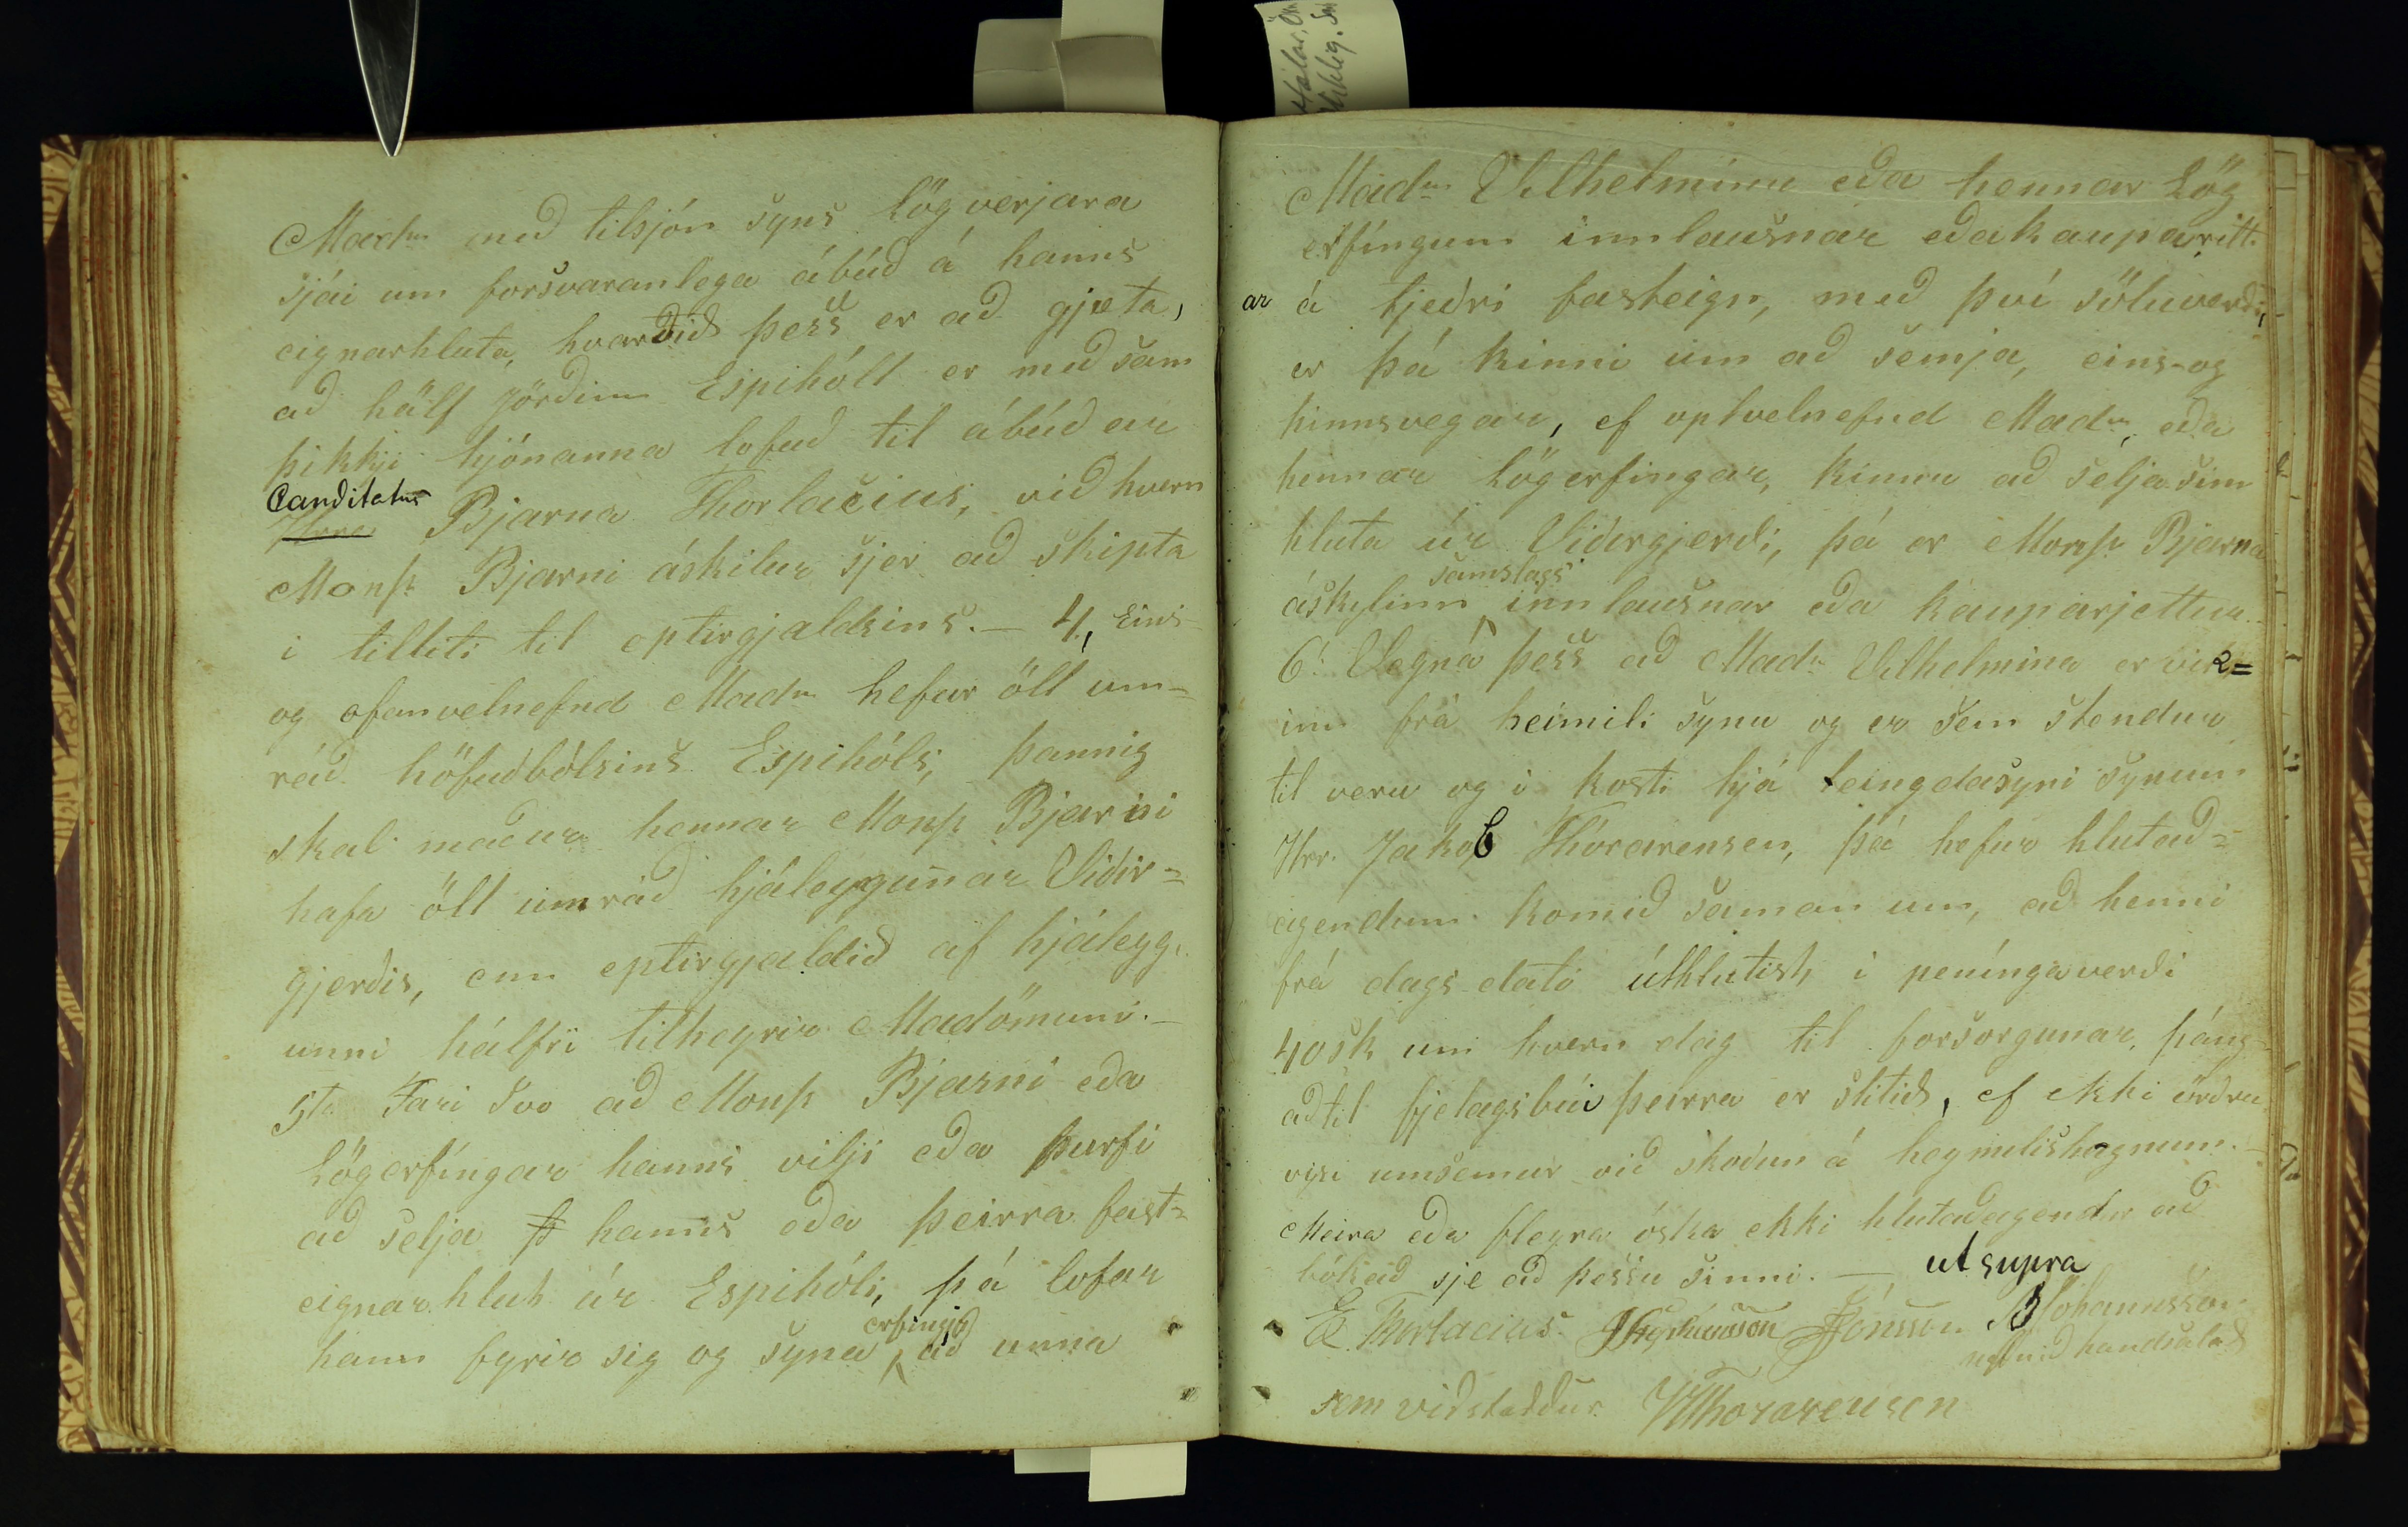 Madm með tilsjón syns lögverjara
sjái um forsvaranlega ábúð á hanns
eignarhluta, hvarvið þess er að gjeta,
að hálf jörðinn Espihóll er með sam
þikkji hjónanna lofuð til ábúðar
Canditatus
Herra Bjarna Thorlacius, við hvern
Monsr Bjarni áskilur sjer að skipta
i tilliti til eptirgjaldsins. — 4, Eins
og ofanvelnefnd Madm hefur öll um=
ráð höfuðbólsins Espihóls, þannig
skal maður hennar Monsr Bjarni
hafa öll umráð hjáleygunnar Viðir=
gjerðis, enn eptirgjaldið af hjáleyg-
unni hálfri tilheyrir Madömuni. —
5ta Fari svo að Monsr Bjarni eða
Lögerfíngar hanns vilji eða þurfi
að selja hanns eða þeirra fast=
eignarhlut úr Espihóli, þá lofar
erfingja
hann fyrir sig og syna að unna
Madm Vilhelmínu eða hennar Lög
erfíngum innlausnar eða kauparitt
ar á tjeðri fasteign, með því söluverði,
er þá kinni um að semja, eins og
hinnsvegar, ef optvelnefnd Madm, eða
hennar Lögerfingar, kinnu að selja sinn
hluta úr Viðirgjerði, þá er Monsr Bjarna
samslags
áskylinn innlausnar eða kauparjettur.
6. Vegna þess að Madm Vilhelmina er vik=
inn frá heimili synu og er sem stendur
til veru og i kosti hjá teingdasyni synum
Hrr. Jakob Thórarensen, þá hefur hlutað=
eigendum komið saman um, að henni
frá dags dato úthlutist, i peníngaverði
40 sk um hvern dag til forsorgunar, þáng
að til fjelagsbúi þeirra er slitið, ef ekki örðru
visi umsemur við skoðun á heymilishagnum. —
Meira eða fleyra óska ekki hlutaðeigendur að
bókað sje að þessu sinni. — ut supra
E. Thorlacius. JJónsson BJohannsson
með handsalað
sem viðstaddur. JThorarensen